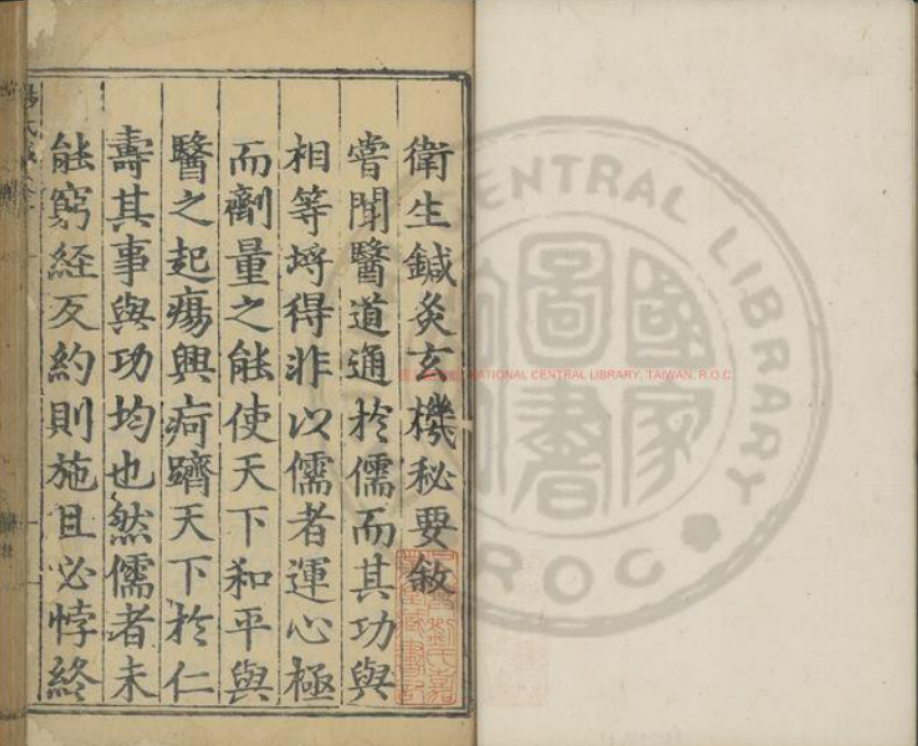 衛生鍼灸玄機秘要敘
嘗聞醫道通於儒而其功與
相等埒得非以儒者運心極
而劑量之能使天下和平與
醫之起瘍興痾躋天下於仁
壽其事與功均也然儒者未
能窮經反約則施且必悖終
NATIONAL CENTRAL LIBRARY, TAIWAN, R.O.C.
CENTRAL LIBRARY
ROC
國家圖書